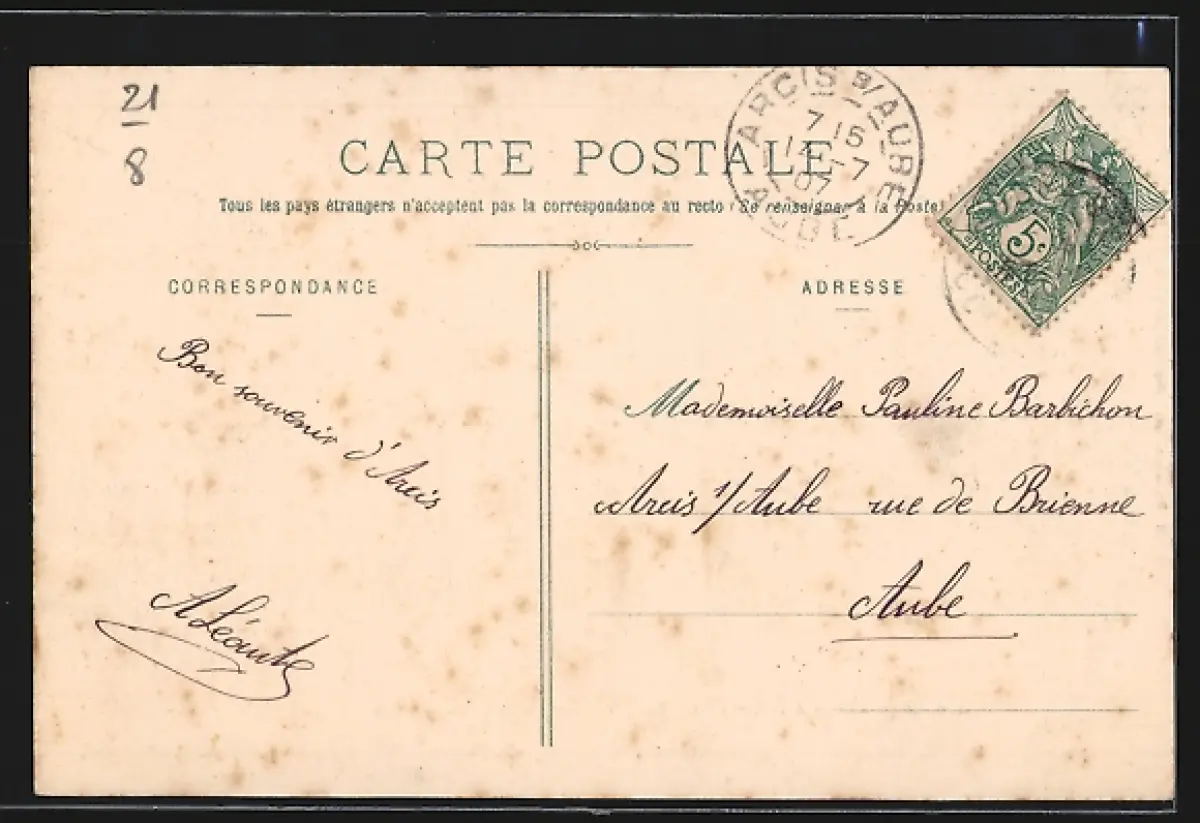 21
8
CARTE POSTALE
Tous les pays étrangers n'acceptent pas la correspondance au recto (Se renseigner à la Poste)
ARCIS S/AUBE
7 15
14 -7
07
AUBE
5
POSTES
CORRESPONDANCE
ADRESSE
Bon souvenir d'Arcis
Mademoiselle Pauline Barbichon
Arcis s/Aube rue de Brienne
Aube